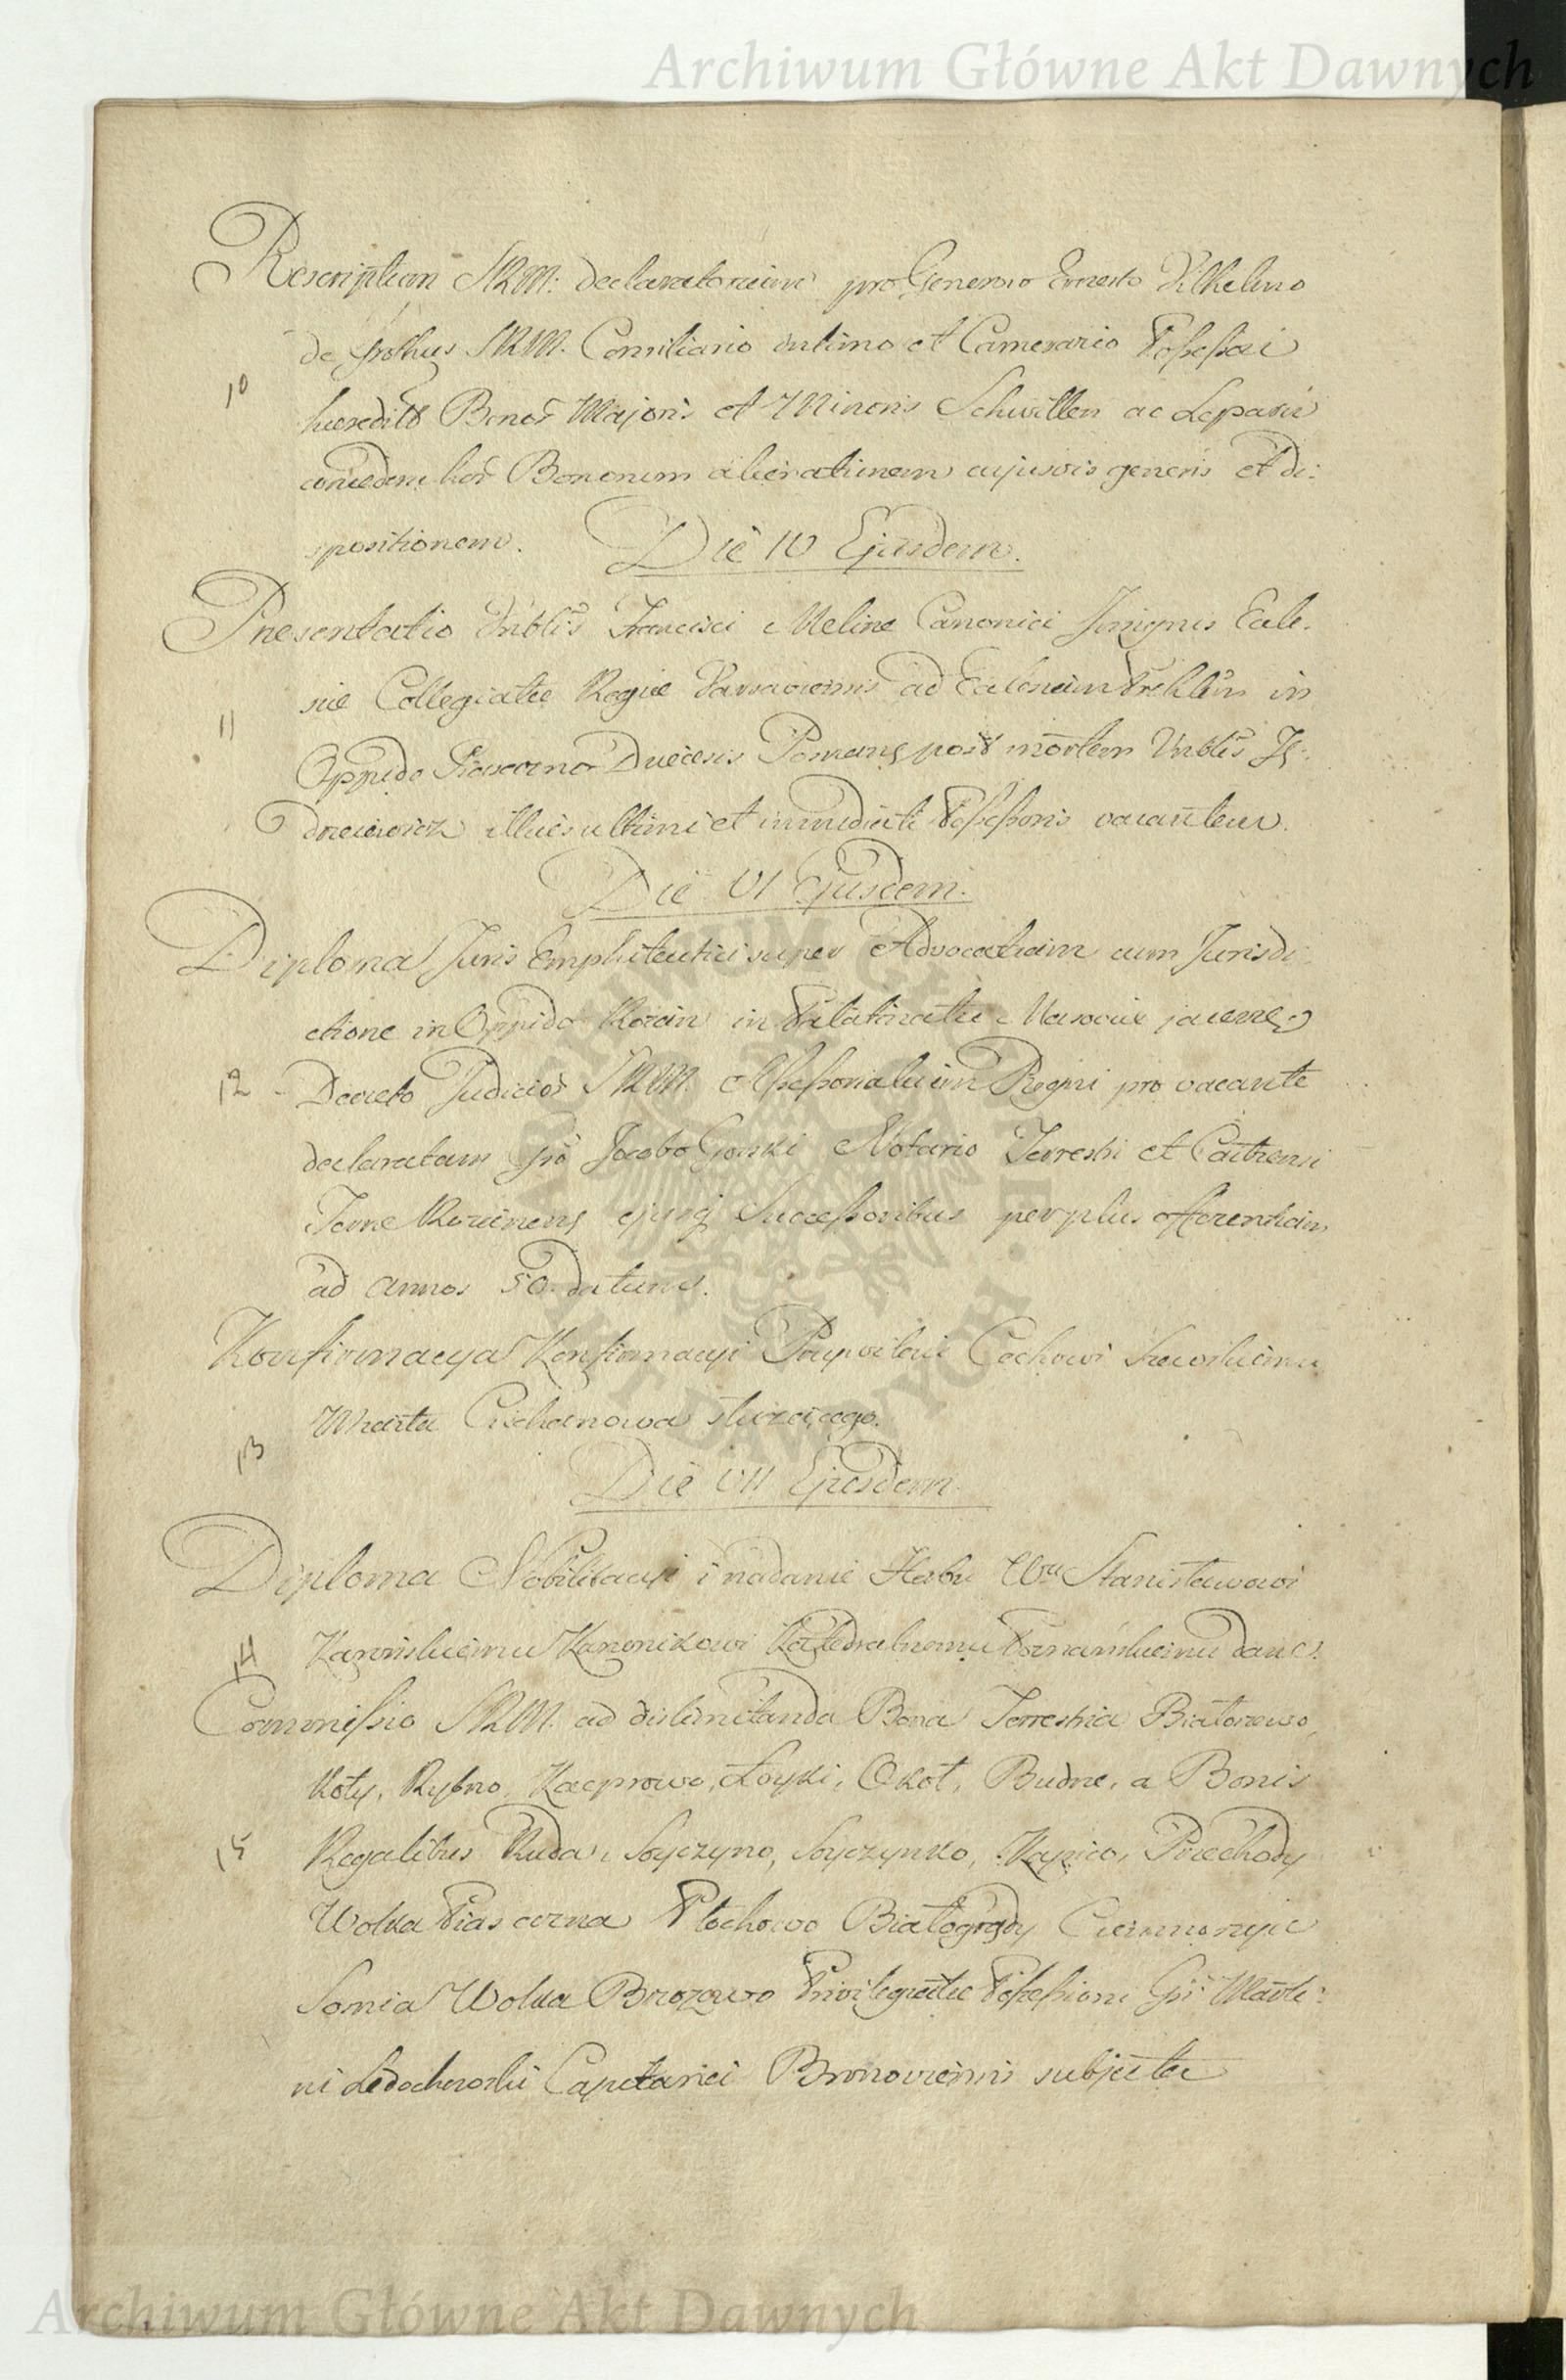 Archiwum Główne Akt Dawnych
Rescriptum SRM. declaratorium pro Generoso Ernesto Vilhelmo
de Grothus SRM. Consiliario Intimo et Camerario Possessori
10
heredit Bonor Majoris et Minoris Schwitten ac
Bonorum alienationem cujusvis generis et di:
spositionem. Die IV Ejusdem.
Praesentatio Vnblis Francisci Meline Canonici Insignis Eccle.
siae Collegiatae Regiae Varsaviensis ad Ecclesiam in
11
Oppido Diecesis post mortem Vnblis
illius ultimi et immediati Possessoris vacantem.
Die VI Ejusdem.
Diploma Juris Emphiteutici super Advocatiam cum Jurisdi
ctione in Oppido Rożan in Palatinatu Masoviae
12 Decreto Judicior SRM. Assessorialium Regni pro vacante
declaratam Gso Jacobo Gorski Notario Terrestri et Castrensi
Terrae Rożanens ejusq Successoribus per plus offerentiam
ad annos 50. datum.
Konfirmacya Konfirmacyi Przywileiu Cechowi Szewskiemu
Miasta Ciechanowa służącego.
13
Die VII Ejusdem
Diploma Nobilitacyi i nadanie Herbu Wu Stanisławowi
14 Kanonikowi Katedralnemu Poznańskiemu dane.
Commissio SRM. ad dislimitanda Bona Terrestria Białorzewo,
Koty, Rybno, Kacprowo, Łoyki, Okół, Budne, a Bonis
15 Regalibus Ruda, Soyczyno, Soyczynko, Kapice, Przechody
Wolka Piaseczna Płochowo Białogrądy
Sonia Wolka Brzozowo Privilegiatae Possessioni Gsi Marti:
ni Ledochowski Capitanei subjectae
Archiwum Główne Akt Dawnych